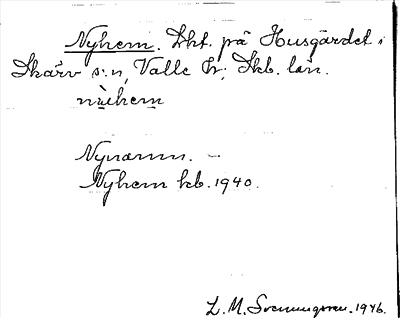 Nyhem. Lht. på Husgärdet i
Skärv s:n, Valle hr; Skb. län.
nỳihem
Nynamn. –
Nyhem kb. 1940.
L. M. Svenungsson. 1946.